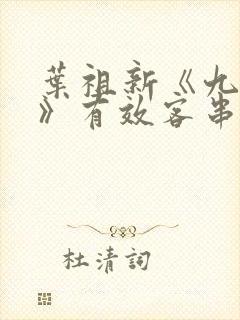 葉祖新《九
》有效客串
杜清詞